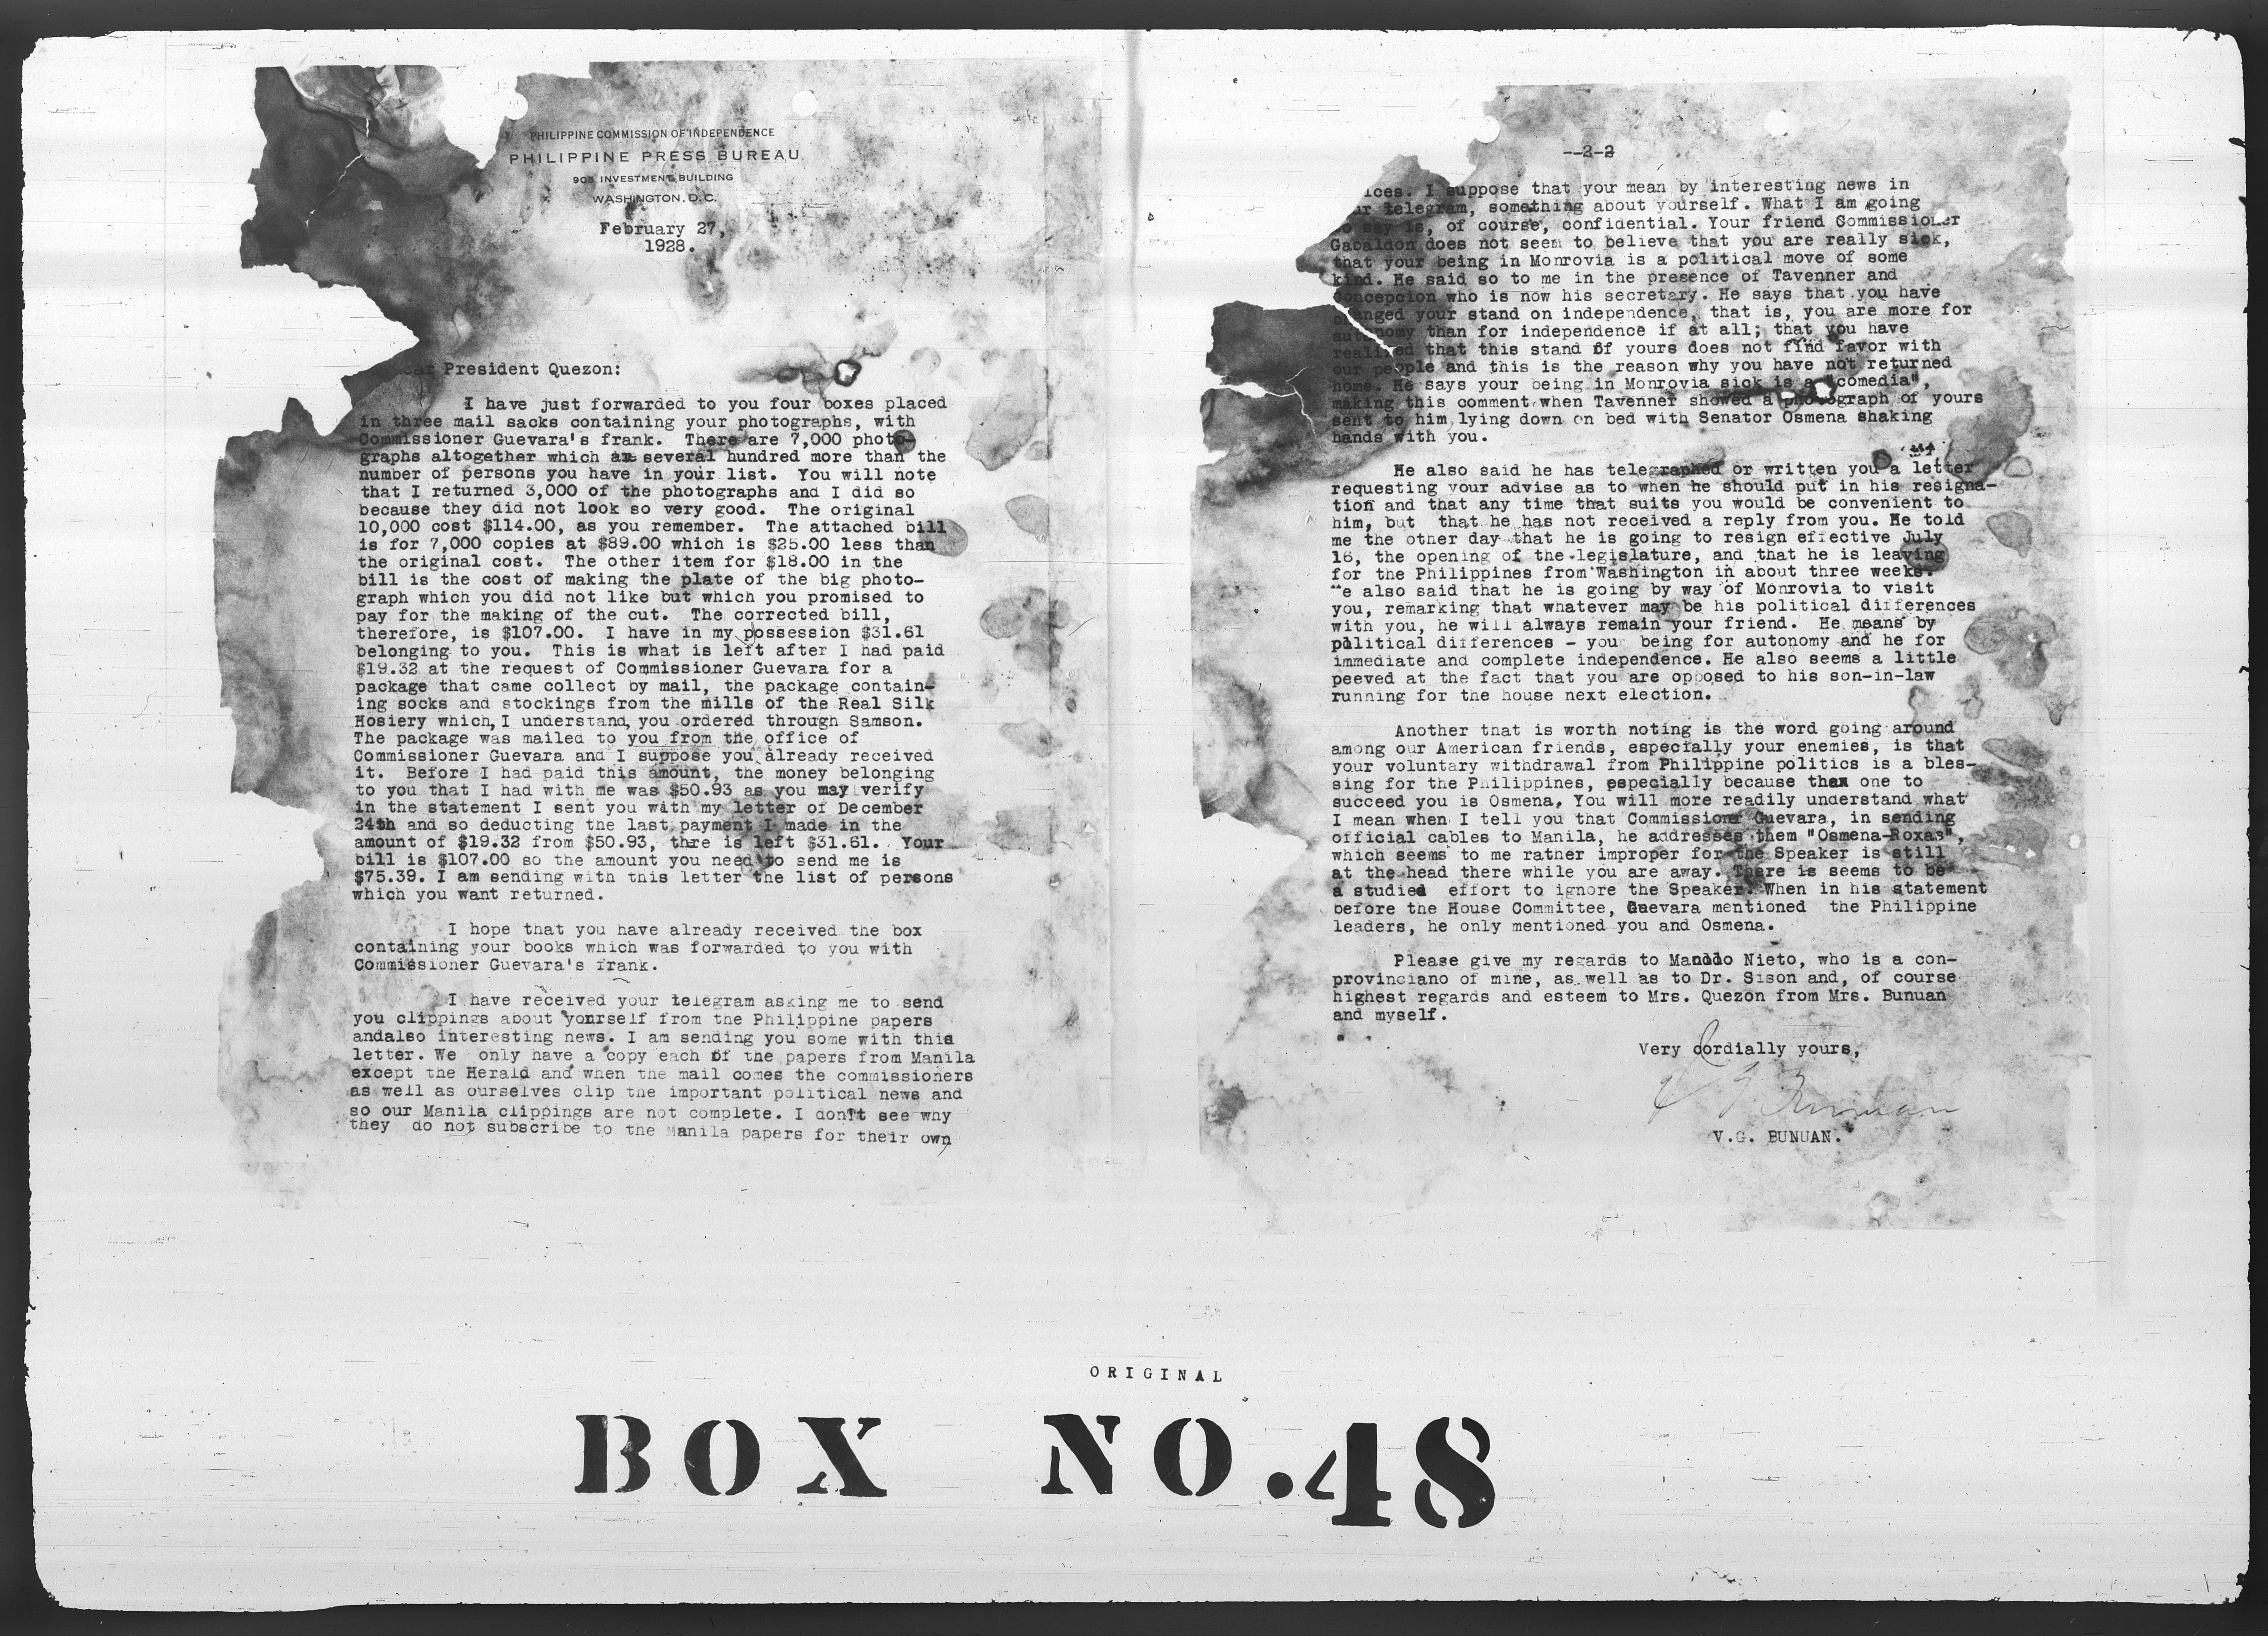 PHILIPPINE COMMISSION OF INDEPENDENCE
PHILIPPINE PRESS BUREAU
903 INVESTMENT BUILDING
WASHINGTON, D.C.
February 27,
1928.
President Quezon:
I have just forwarded to you four boxes placed
in three mail sacks containing your photographs, with
Commissioner Guevara's frank. There are 7,000 photo-
graphs altogether which are several hundred more than the
number of persons you have in your list. You will note
that I returned 3,000 of the photographs and I did so
because they did not look so very good. The original
10,000 cost $114.00, as you remember. The attached bill
is for 7,000 copies at $89.00 which is $25.00 less than
the original cost. The other item for $18.00 in the
bill is the cost of making the plate of the big photo-
graph which you did not like but which you promised to
pay for the making of the cut. The corrected bill,
therefore, is $107.00. I have in my possession $31.61
belonging to you. This is what is left after I had paid
$19.32 at the request of Commissioner Guevara for a
package that came collect by mail, the package contain-
ing socks and stockings from the mills of the Real Silk
Hosiery which, I understand, you ordered through Samson.
The package was mailed to you from the office of
Commissioner Guevara and I suppose you already received
it. Before I had paid this amount, the money belonging
to you that I had with me was $50.93 as you may verify
in the statement I sent you with my letter of December
24th and so deducting the last payment I made in the
amount of $19.32 from $50.93, there is left $31.61. Your
bill is $107.00 so the amount you need to send me is
$75.39. I am sending with this letter the list of persons
which you want returned.
I hope that you have already received the box
containing your books which was forwarded to you with
Commissioner Guevara's frank.
I have received your telegram asking me to send
you clippings about yourself from the Philippine papers
andalso interesting news. I am sending you some with this
letter. We only have a copy each of the papers from Manila
except the Herald and when the mail comes the commissioners
as well as ourselves clip the important political news and
so our Manila clippings are not complete. I don't see why
they do not subscribe to the Manila papers for their own
--2-2
ices. I suppose that your mean by interesting news in
telegram, something about yourself. What I am going
to say is, of course, confidential. Your friend Commissioner
Gabaldon does not seem to believe that you are really sick,
that your being in Monrovia is a political move of some
kind. He said so to me in the presence of Tavenner and
Concepcion who is now his secretary. He says that you have
changed your stand on independence, that is, you are more for
autonomy than for independence if at all; that you have
realized that this stand of yours does not find favor with
our people and this is the reason why you have not returned
home. He says your being in Monrovia sick is a "comedia",
making this comment when Tavenner showed a photograph of yours
sent to him lying down on bed with Senator Osmena shaking
hands with you.
He also said he has telegraphed or written you a letter
requesting your advise as to when he should put in his resigna-
tion and that any time that suits you would be convenient to
him, but that he has not received a reply from you. He told
me the other day that he is going to resign effective July
16, the opening of the legislature, and that he is leaving
for the Philippines from Washington in about three weeks.
He also said that he is going by way of Monrovia to visit
you, remarking that whatever may be his political differences
with you, he will always remain your friend. He means by
political differences - you being for autonomy and he for
immediate and complete independence. He also seems a little
peeved at the fact that you are opposed to his son-in-law
running for the house next election.
Another that is worth noting is the word going around
among our American friends, especially your enemies, is that
your voluntary withdrawal from Philippine politics is a bles-
sing for the Philippines, especially because the one to
succeed you is Osmena. You will more readily understand what
I mean when I tell you that Commissioner Guevara, in sending
official cables to Manila, he addresses them "Osmena-Roxas",
which seems to me rather improper for the Speaker is still
at the head there while you are away. There is seems to be
a studied effort to ignore the Speaker. When in his statement
before the House Committee, Guevara mentioned the Philippine
leaders, he only mentioned you and Osmena.
Please give my regards to Nieto, who is a con-
provinciano of mine, as well as to Dr. Sison and, of course
highest regards and esteem to Mrs. Quezon from Mrs. Bunuan
and myself.
Very cordially yours,
V G Bunuan
V.G. BUNUAN.
ORIGINAL
BOX NO.48